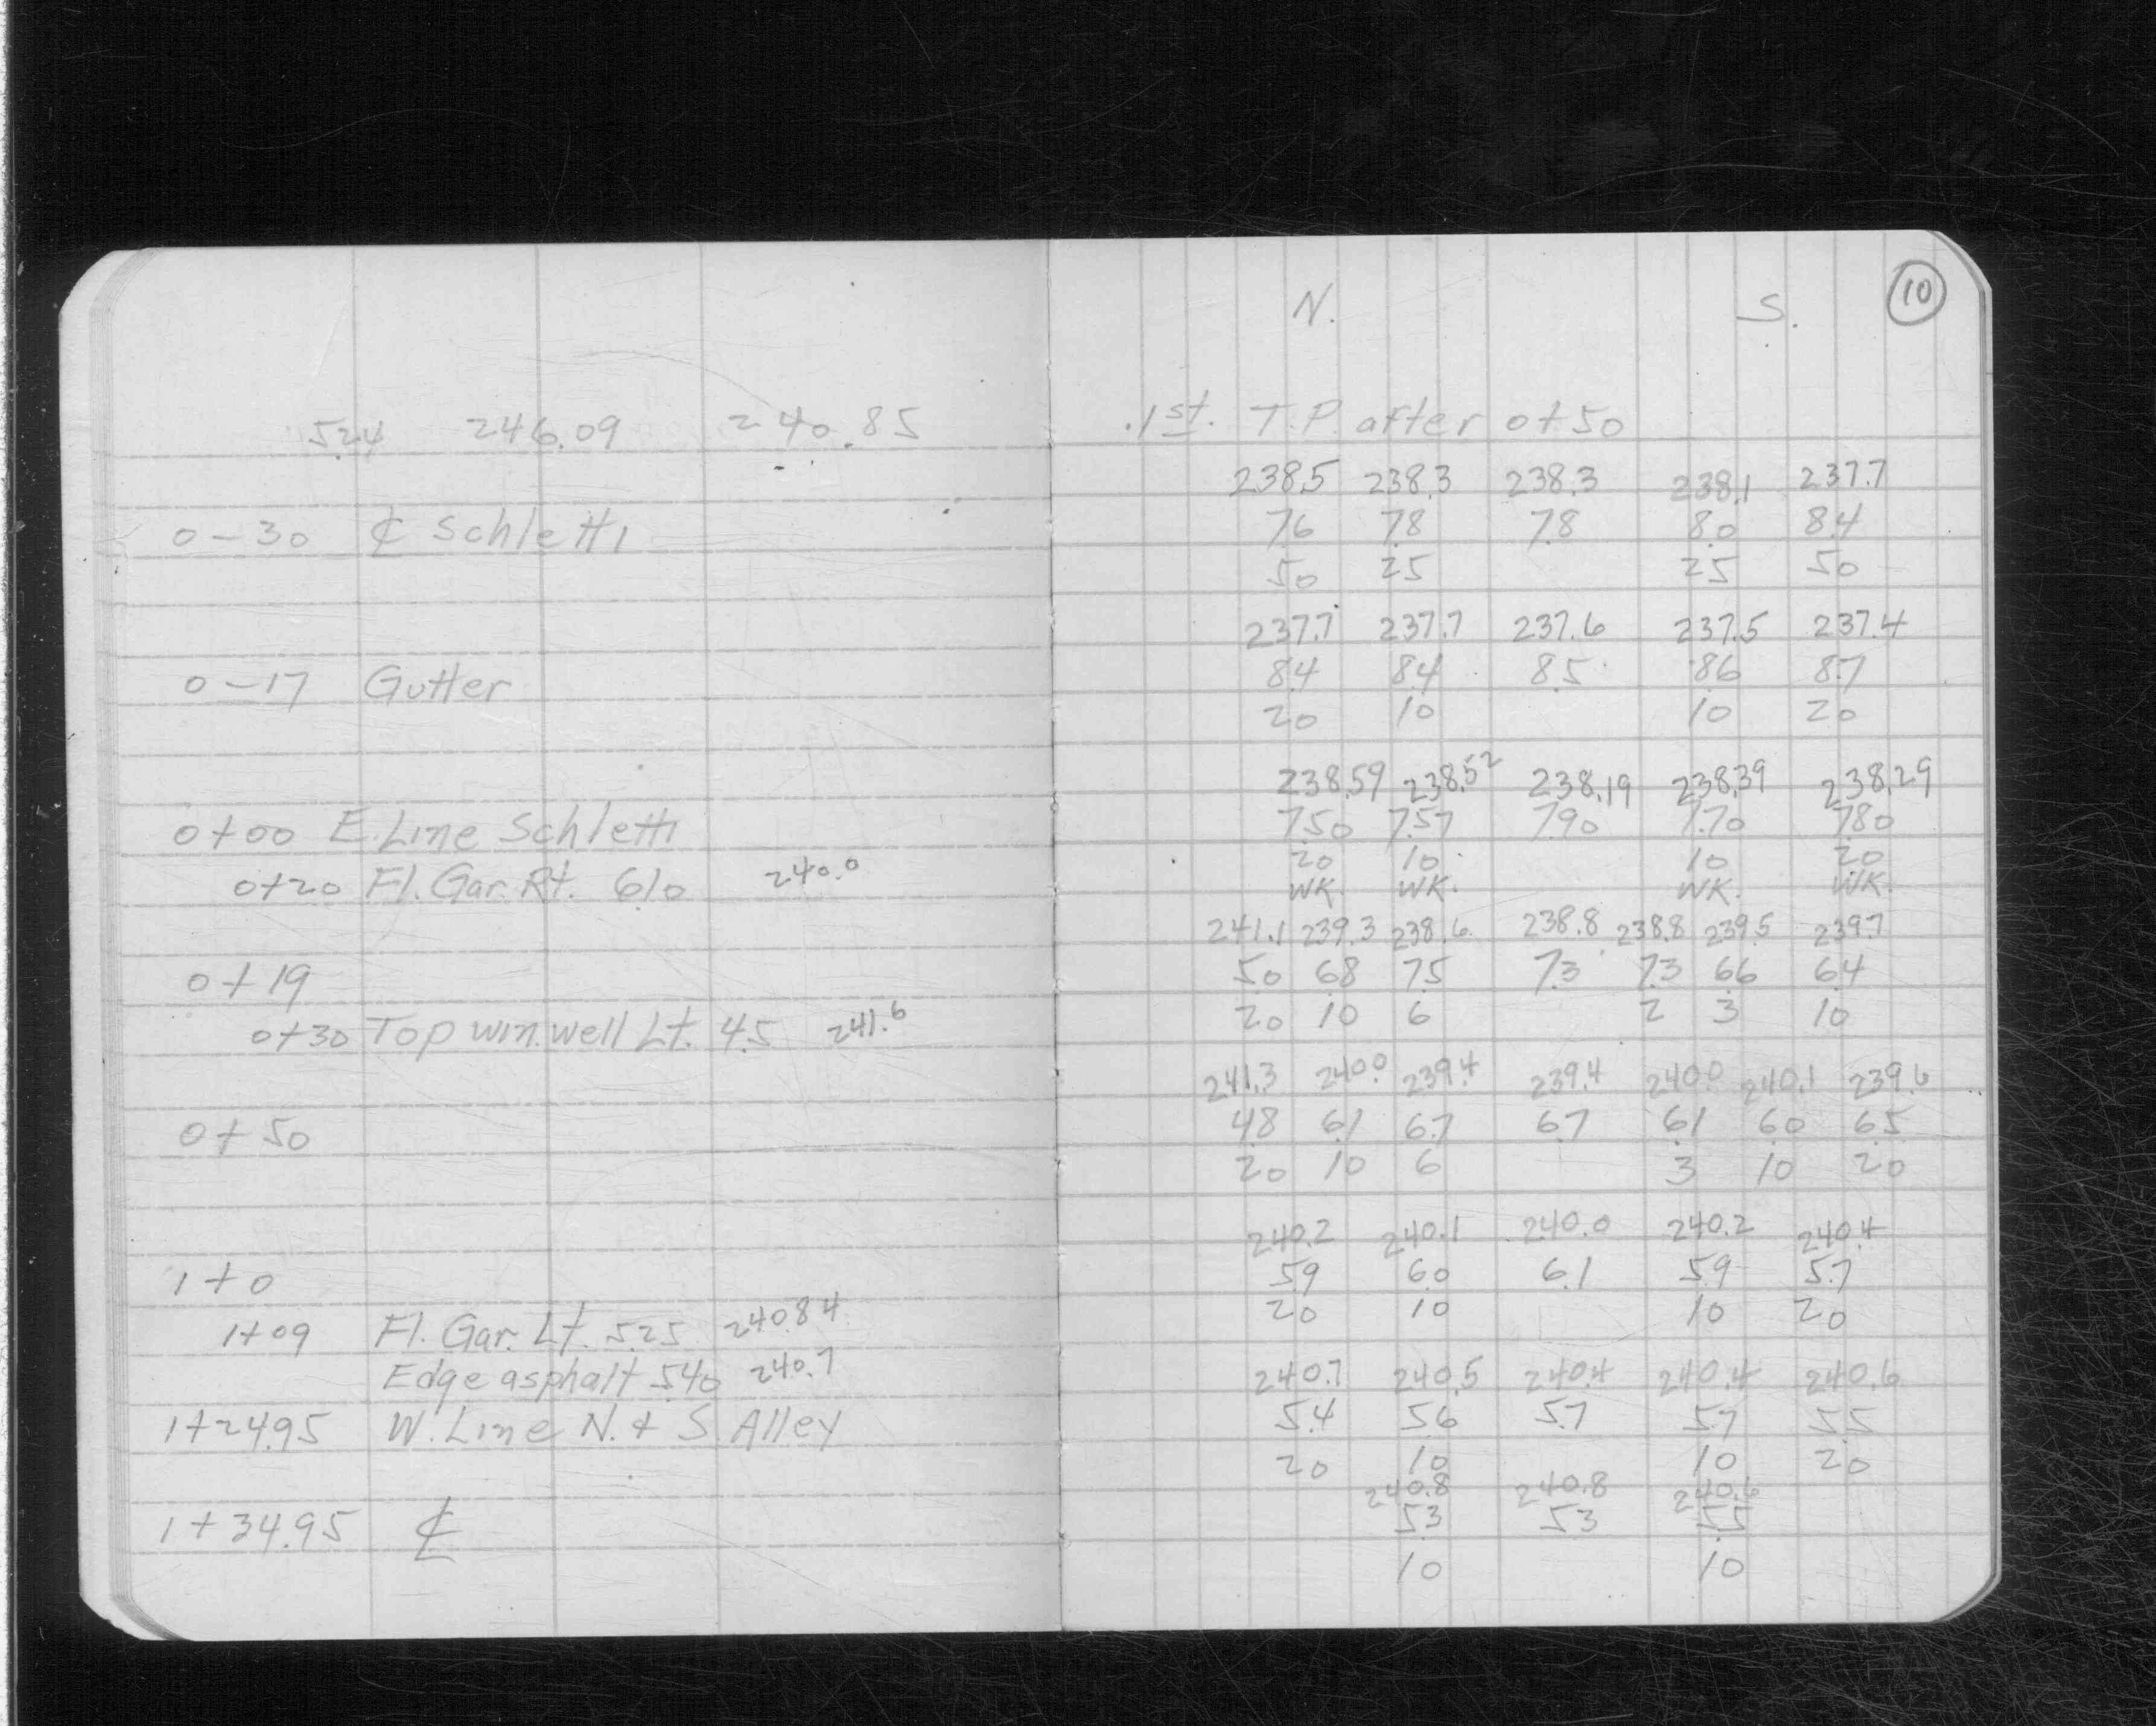 N. S. 10
5.24 246.09 240.85 1st. T.P. after 0+50
238.5 238.3 238.3 238.1 237.7
0-30 ℄ Schletti 7.6 7.8 7.8 8.0 8.4
50 25 25 50
237.7 237.7 237.6 237.5 237.4
0-17 Gutter 8.4 8.4 8.5 8.6 8.7
20 10 10 20
238.59 238.52 238.19 238.39 238.29
0+00 E. Line Schletti 7.50 7.57 7.90 7.70 7.80
20 10 10 20
0+20 Fl. Gar. Rt. 6.10 240.0 WK. WK. WK. WK.
241.1 239.3 238.6 238.8 238.8 239.5 239.7
0+19 5.0 6.8 7.5 7.3 7.3 6.6 6.4
20 10 6 2 3 10
0+30 Top win. well Lt. 4.5 241.6
241.3 240.0 239.4 239.4 240.0 240.1 239.6
0+50 4.8 6.1 6.7 6.7 6.1 6.0 6.5
20 10 6 3 10 20
240.2 240.1 240.0 240.2 240.4
1+0 5.9 6.0 6.1 5.9 5.7
20 10 10 20
1+09 Fl. Gar. Lt. 5.25 240.84
Edge asphalt 5.40 240.7
240.7 240.5 240.4 240.4 240.6
1+24.95 W. Line N. & S. Alley 5.4 5.6 5.7 5.7 5.5
20 10 10 20
240.8 240.8 240.6
1+34.95 ℄ 5.3 5.3 5.5
10 10